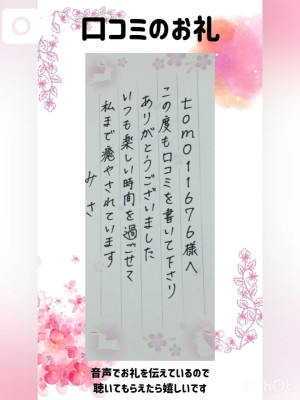 口コミのお礼
tomo11676様へ
この度も口コミを書いて下さり
ありがとうございました
いつも楽しい時間を過ごせて
私まで癒やされています
みさ
音声でお礼を伝えているので
聴いてもらえたら嬉しいです